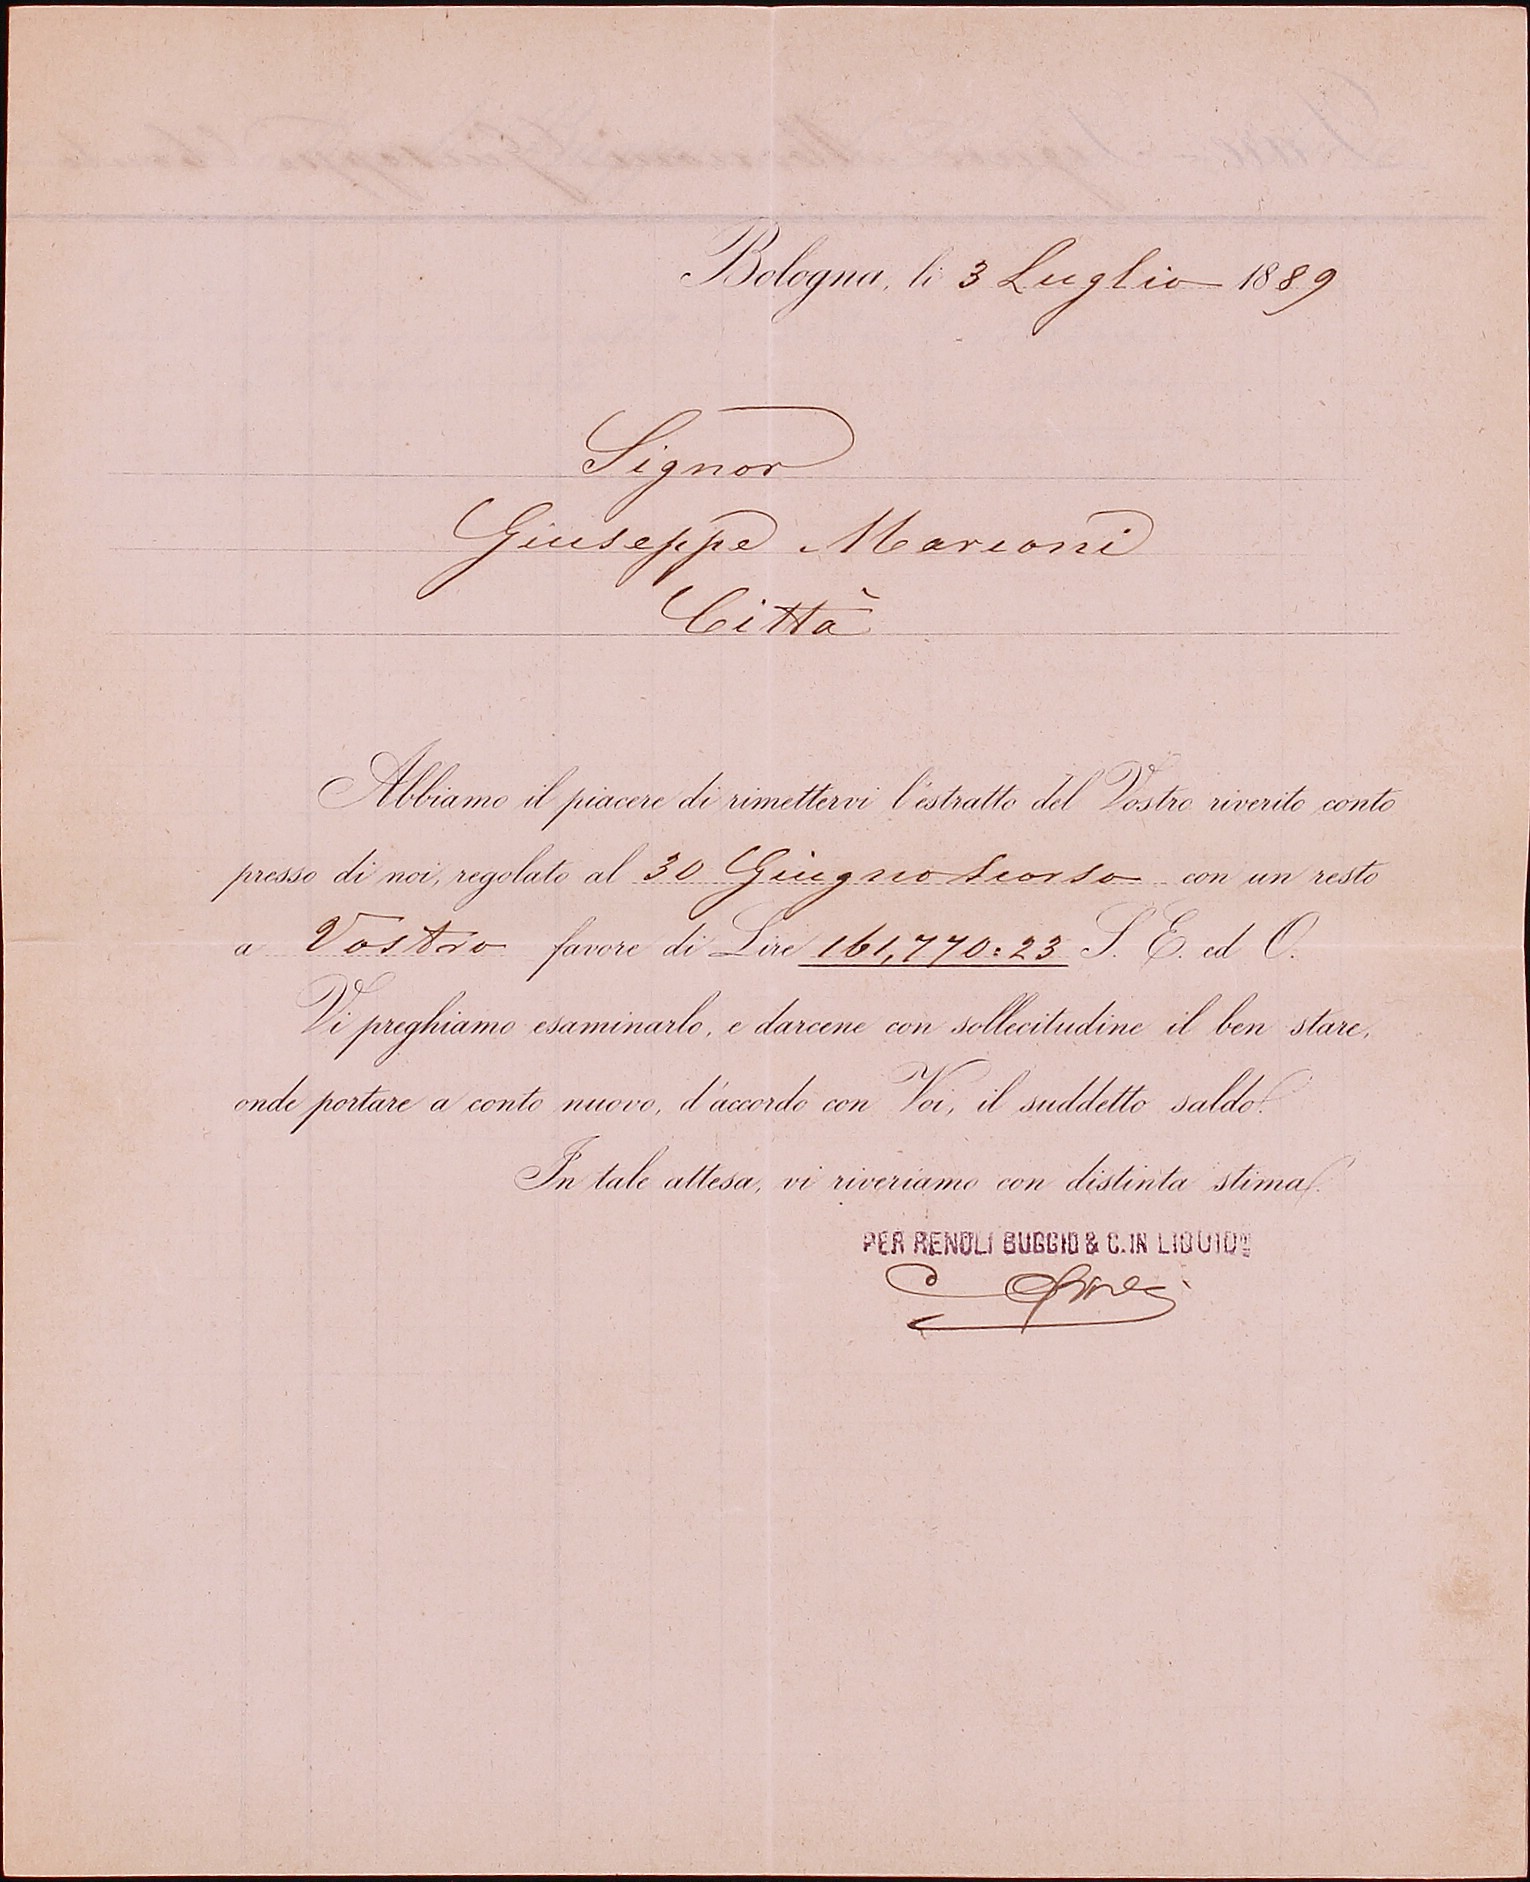 Bologna, li 3 Luglio 1889
Signor
Giuseppe Marconi
Città
Abbiamo il piacere di rimettervi l'estratto del Vostro riverito conto
presso di noi, regolato al 30 Giugno scorso con un resto
a Vostro favore di Lire 161,770:23 S. E. ed O.
Vi preghiamo esaminarlo, e darcene con sollecitudine il ben stare,
onde portare a conto nuovo, d'accordo con Voi, il suddetto saldo.
In tale attesa, vi riveriamo con distinta stima.
PER RENOLI BUGGIO & C. IN LIQUIDE